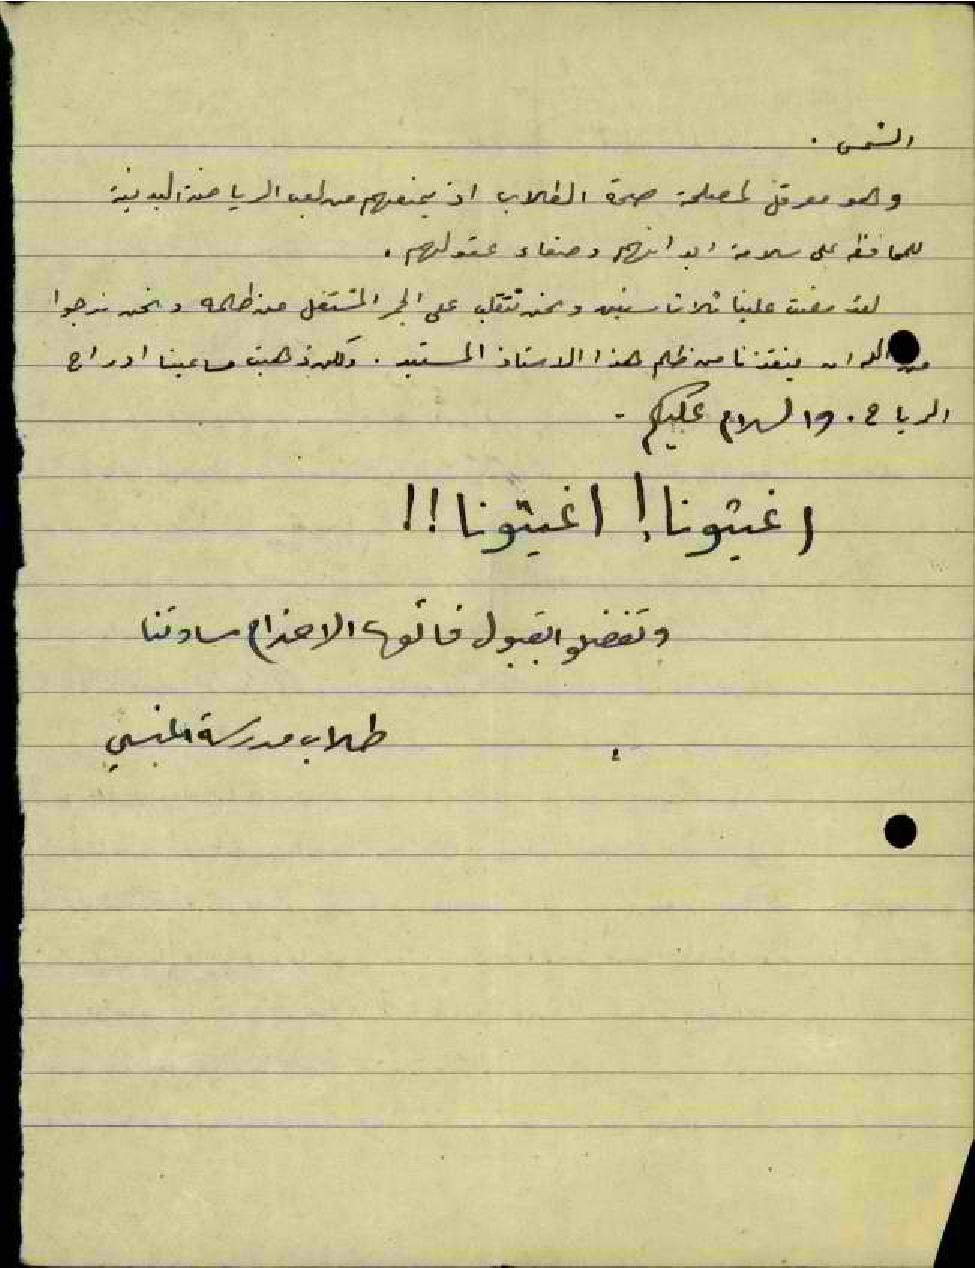 الشمس .
وهو معرقل لمصلحة صحة الطلاب اذ يمنعهم من لعب الرياضة البدنية
للمحافظة على سلامة ابدانهم وصفاء عقولهم .
لقد مضت علينا ثلاث سنين ونحن نتقلب على الجمر المشتعل من ظلمه ونحن نرجوا
من الله ان ينقذنا من ظلم هذا الاستاذ المستبد . ولكن ذهبت مساعينا ادراج
الرياح . والسلام عليكم .
اغيثونا! اغيثونا!!
وتفضلوا بقبول فائق الاحترام سادتنا
طلاب مدرسة المنسي